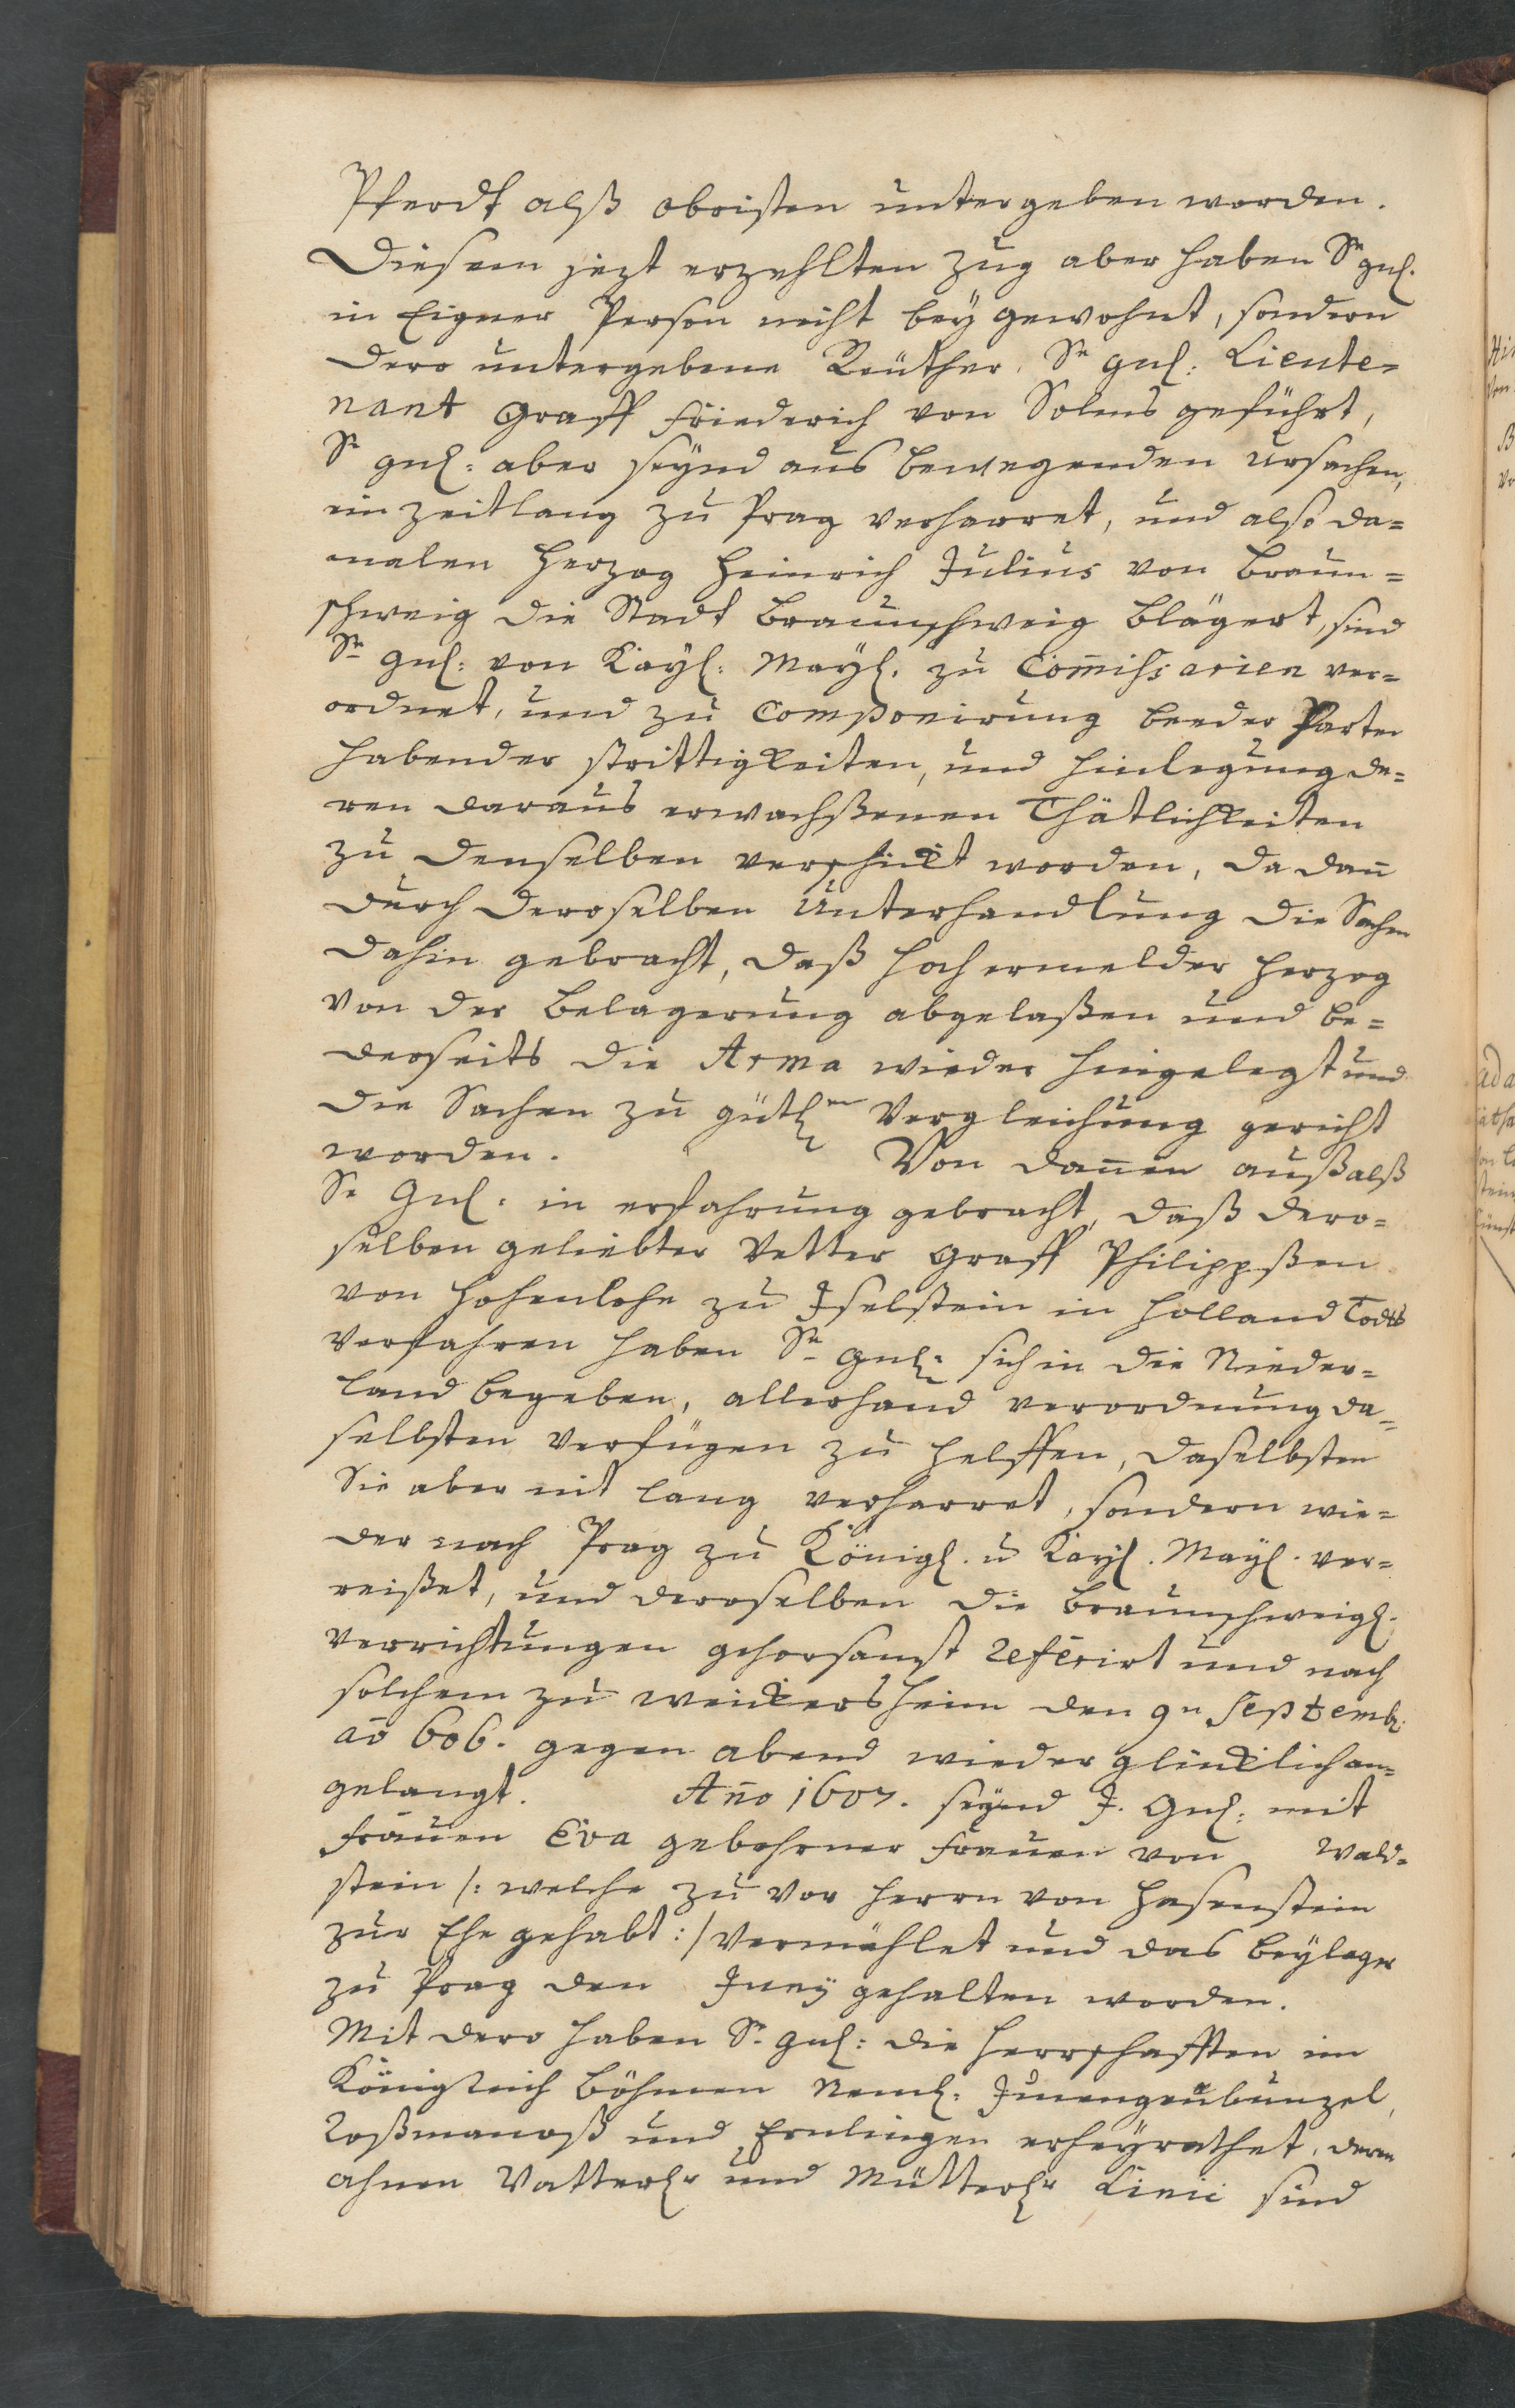 Pferdt alß obristen untergeben worden.
Diesem jezt erzehlten Zug aber haben Sr gnl.
in Eigner Person nicht beÿ gewohnt, sondern
dero untergebene Reuther, Sr gnl: Lieute=
nant Graff Friederich von Solms geführt,
Sr gnl: aber seÿnd aus bewegenden ursachen,
ein Zeitlang zu Prag verharret, und also da=
malen Herzog Heinrich Julius von Braun=
schweig die Stadt Braunschweig blägert, sind
Sr Gnl: von Kaÿl: Maÿl. zu Com̄issarien ver=
ordnet, und zu Componirung beeder Parten
habender strittigkeiten, und hinlegung de=
ren daraus erwachßenen Thätlichkeiten
zu denselben verschickt worden, da dan̄
durch deroselben Unterhandlung die Sachen
dahin gebracht, daß hochermelder Herzog
von der Belagerung abgelaßen und be=
derseits die Arma wieder hingelegt und
die Sachen zu gütl.en Vergleichung gericht
worden. Von dan̄en auß alß
Sr Gnl. in erfahrung gebracht, daß dero=
selben geliebter Vetter Graff Philippßen
von Hohenlohe zu Iselstein in Holland Todts
verfahren haben Sr gnl: sich in die Nieder=
land begeben, allerhand verordnung da=
selbsten verfügen zu helffen, daselbsten
Sie aber nit lang verharret, sondern wie=
der nach Prag zu Königl. u Kaÿl. Maÿl. ver=
reißet, und deroselben die Braunschweigl.
Verrichtungen gehorsamst referirt und nach
solchem zu Weickersheim den 9n Septembr.
aō 606. gegen abend wieder glücklich an=
gelangt. An̄o 1607. seÿnd J. Gnl: mit
Frauen Eva gebohrner Frauen von Wald=
stein /: welche zu vor Herrn von Hasenstein
zur Ehe gehabt :/ vermählet und das Beÿlager
zu Prag den Junÿ gehalten worden.
Mit dero haben Sr. gnl: die Herrschafften im
Königreich Böhmen Neml. Jungenbunzel,
Koßmanoß und erheÿrathet, deren
ahnen Vatterlr und Mütterlr Linii sind